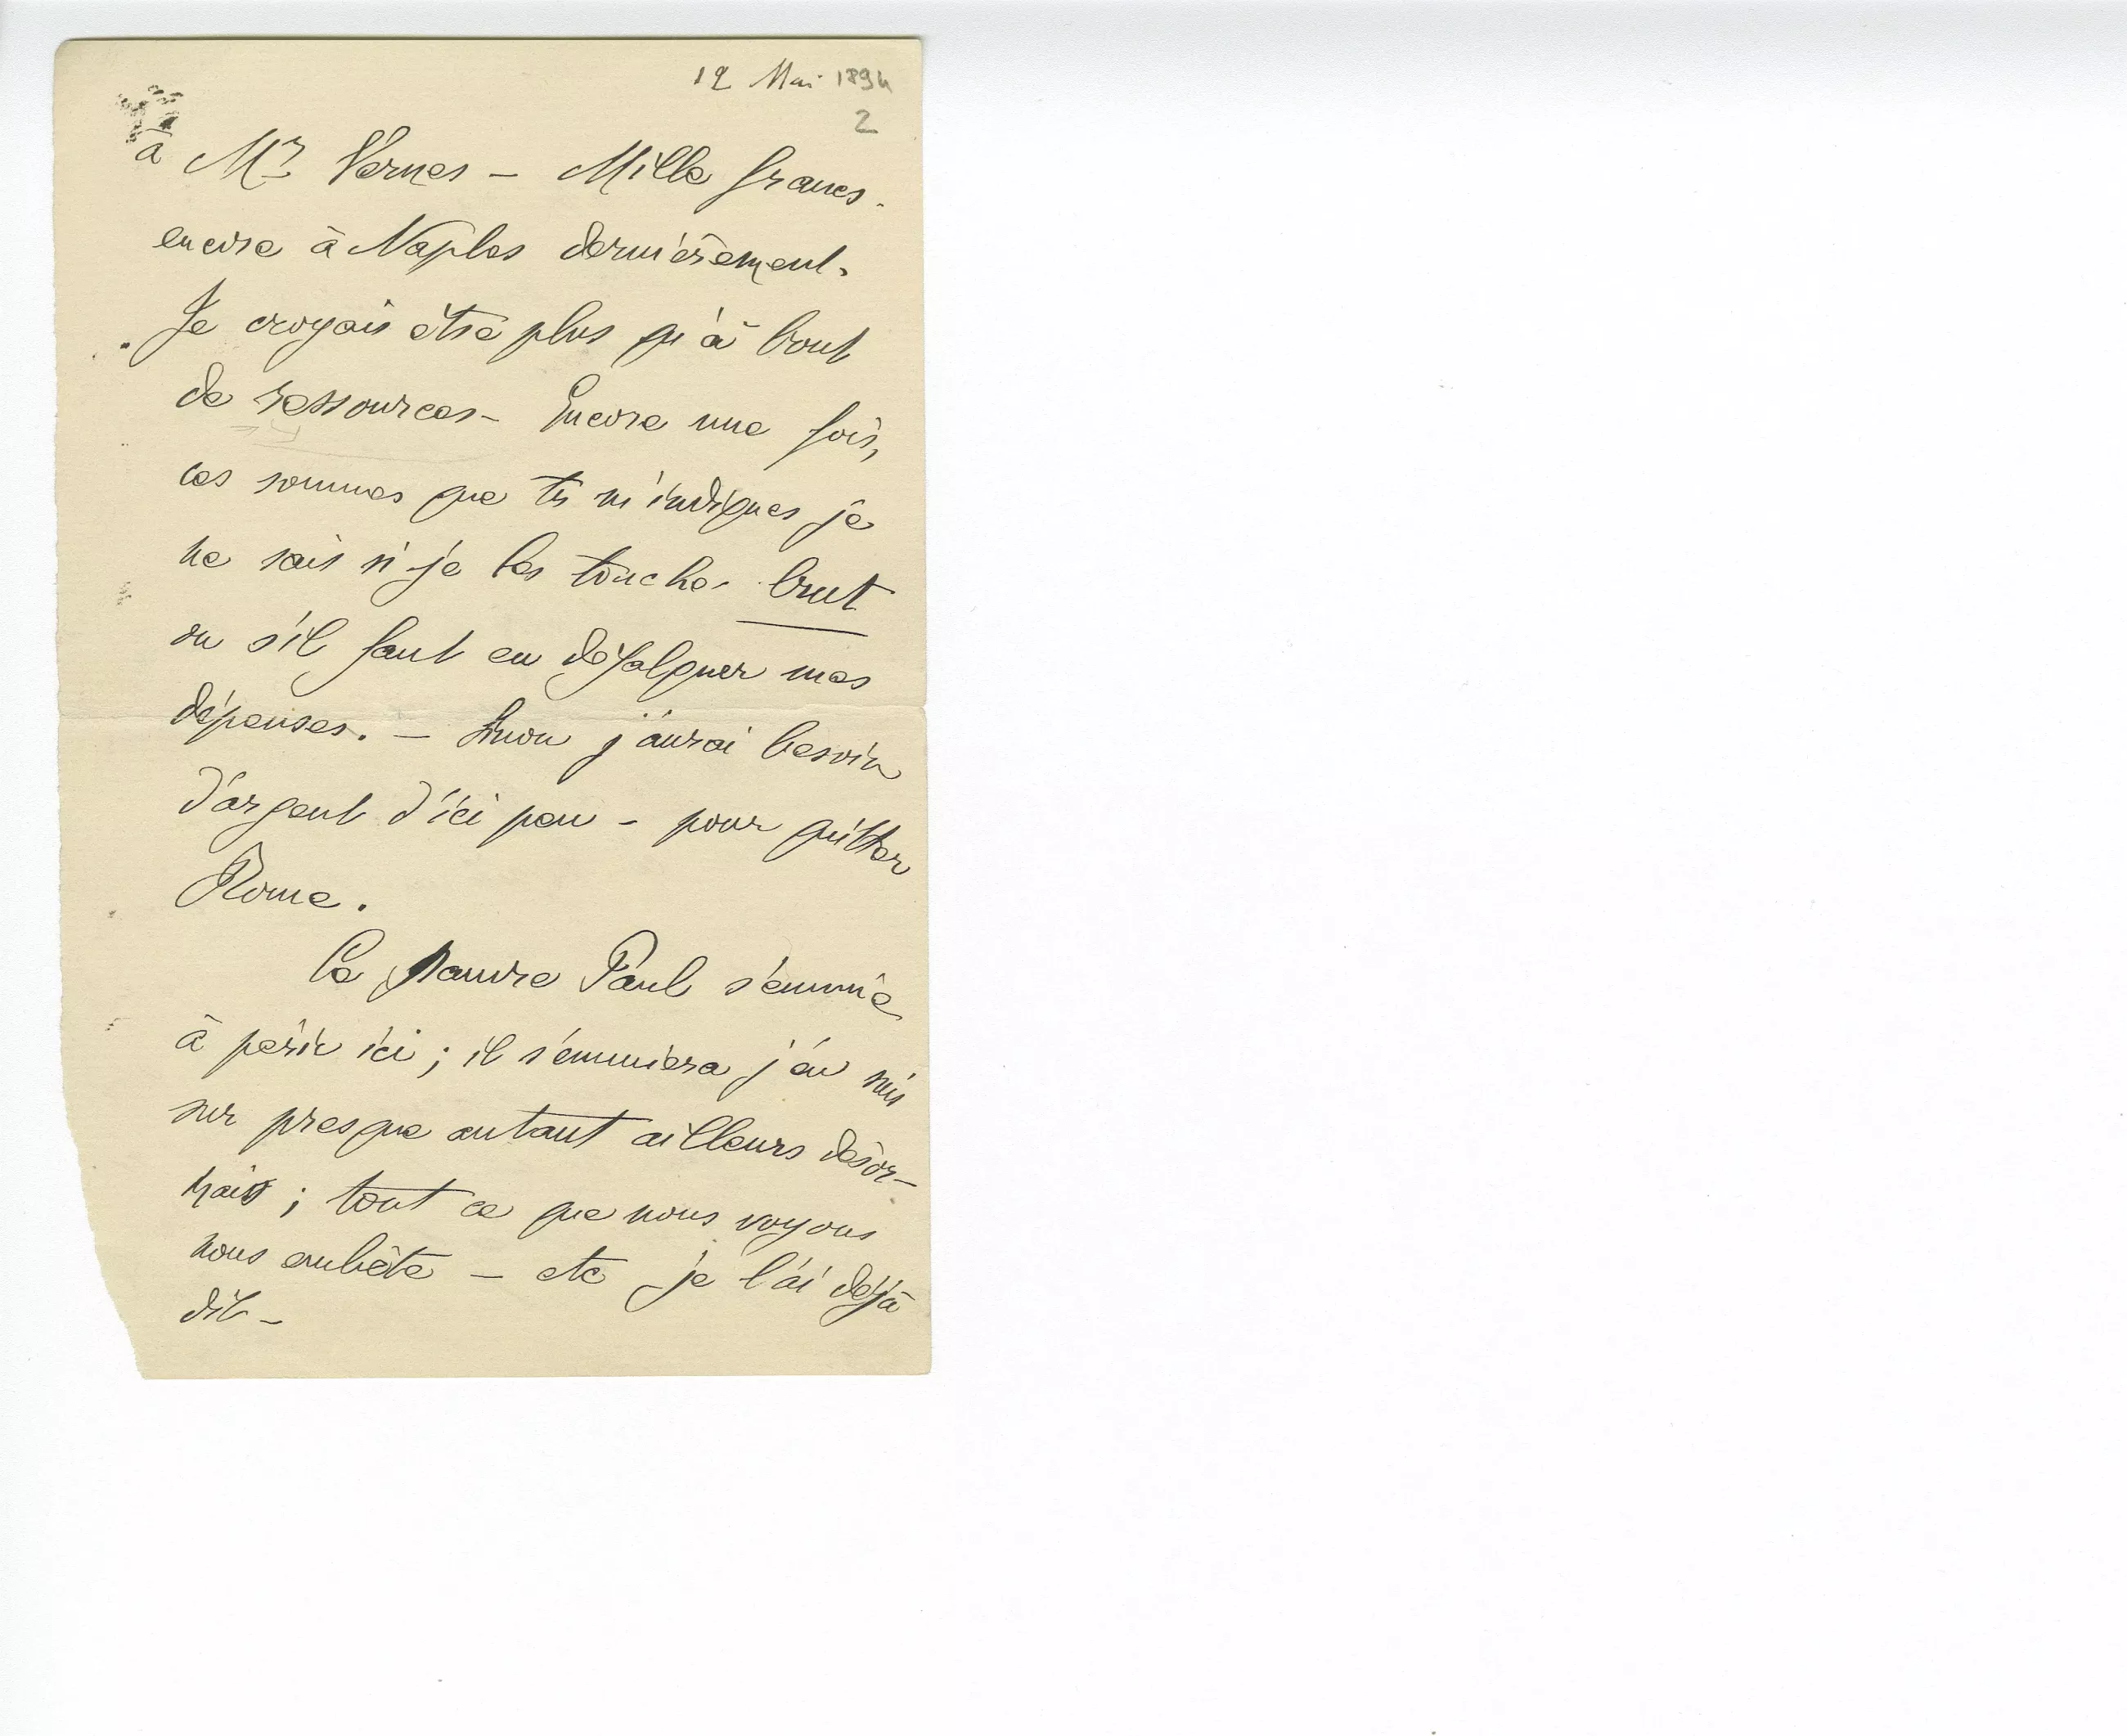 12 Mai 1894
2
à Mr Vernes — Mille francs.
encore à Naples dernièrement.
Je croyais être plus qu'à bout
de ressources — Encore une fois,
ces sommes que tu m'indiques je
ne sais si je les touche brut
ou s'il faut en défalquer mes
dépenses. — Sinon j'aurai besoin
d'argent d'ici peu — pour quitter
Rome.
Ce pauvre Paul s'ennuie
à périr ici ; il s'ennuiera j'en suis
sur presque autant ailleurs désor-
mais ; tout ce que nous voyons
nous embête — etc je l'ai déjà
dit —